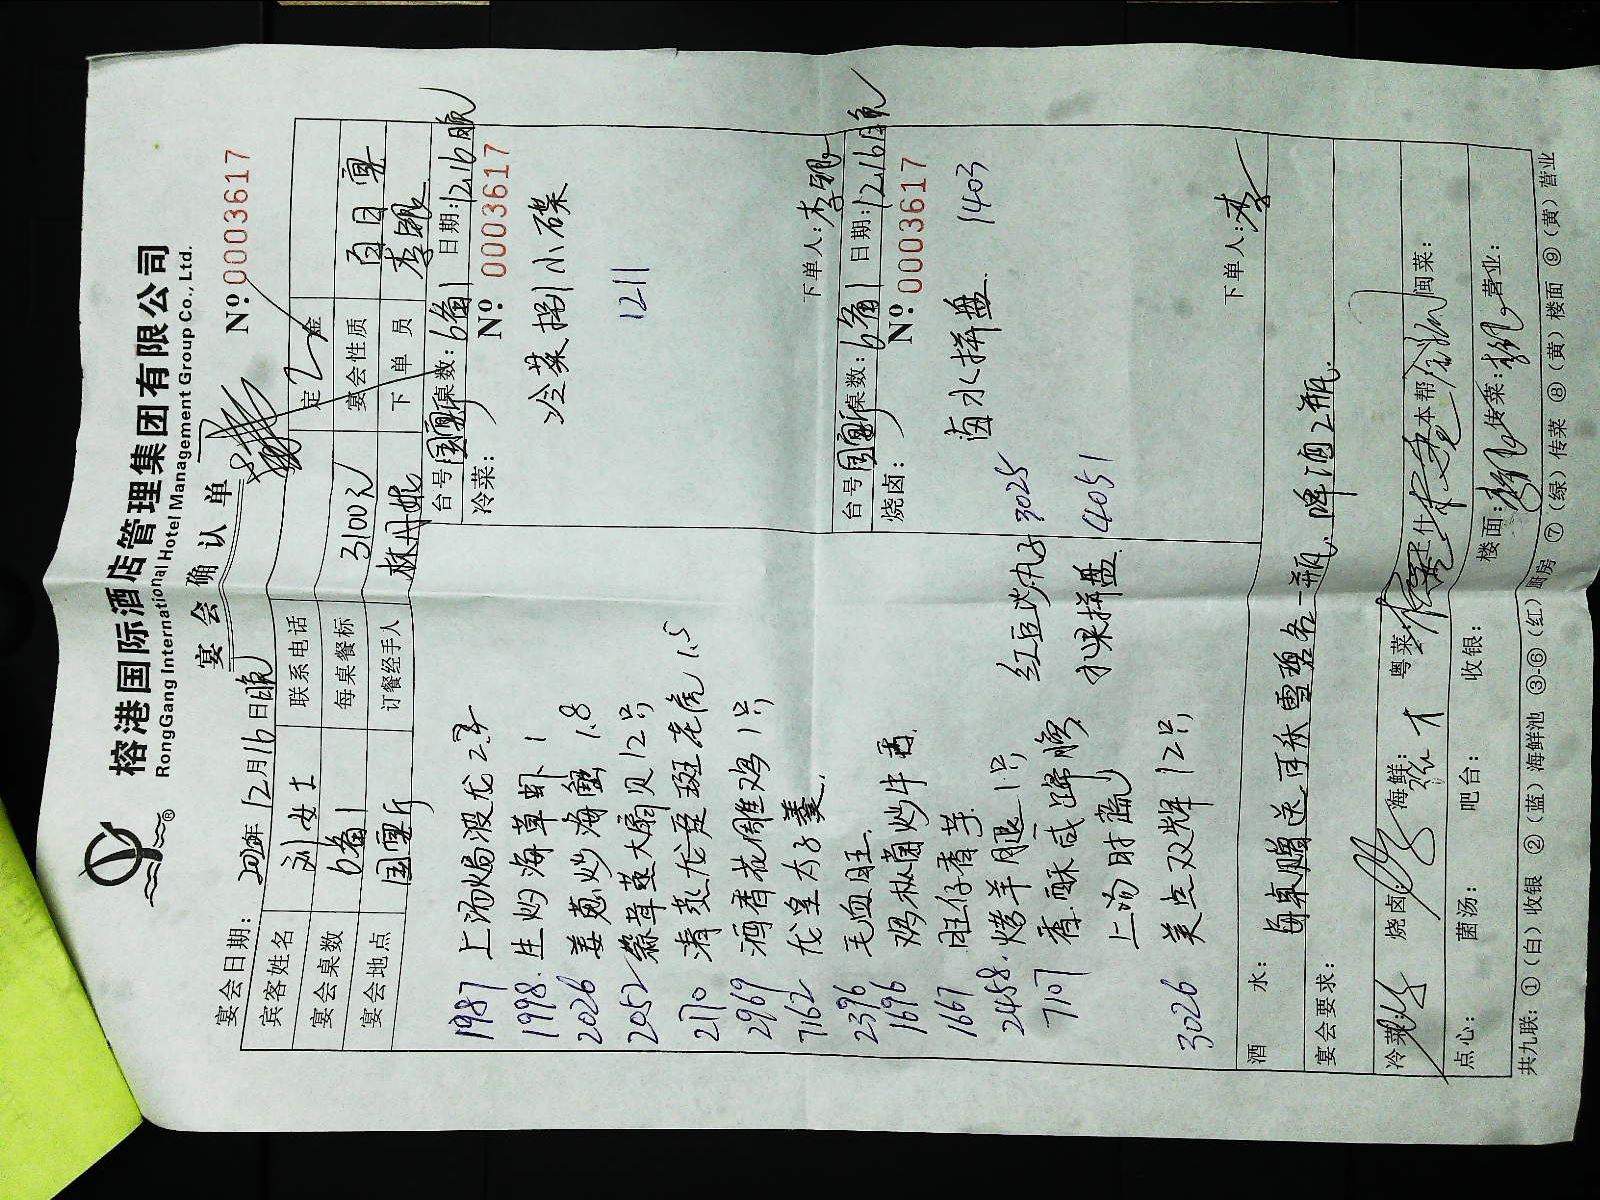 榕港国际酒店管理集团有限公司
RongGang International Hotel Management Group Co., Ltd.
宴会确认单
Nº 0003617
宴会日期: 12月16日晚
宾客姓名 刘女士 联系电话 定金
宴会桌数 6备1 每桌餐标 3100元 宴会性质 百日宴
宴会地点 国宴厅 订餐经手人 下单员 李
台号 国宴厅 桌数: 6备1 日期: 12.16晚
冷菜: Nº 0003617
冷菜捌小碟
1211
下单人: 李
台号 国宴厅 桌数: 6备1 日期: 12.16晚
烧卤: Nº 0003617
卤水拼盘 1403
下单人: 李
1987 上汤焗波龙
1998 生灼海草虾 1
2026 姜葱炒海蟹 1.8
2052 蒜茸蒸大扇贝 12只
2170 清蒸龙趸斑 1.5
2969 酒香花雕鸡 1只
7162 龙皇太子羹
2396 毛血旺
1696 鸡枞菌炒牛
1667 旺仔香芋
2458 烤羊腿 1只
7107 香酥咸蹄膀
上汤时蔬
3026 美点双辉 12只
红豆沙丸子 3025
水果拼盘 4051
酒水: 每桌赠送可乐雪碧各一瓶, 啤酒2瓶.
宴会要求:
冷菜: 烧卤: 海鲜: 粤菜: 上什: 本帮: 闽菜:
点心: 菌汤: 吧台: 收银: 楼面: 传菜: 营业:
共九联: ①(白)收银 ②(蓝)海鲜池 ③-⑥(红)厨房 ⑦(绿)传菜 ⑧(黄)楼面 ⑨(黄)营业